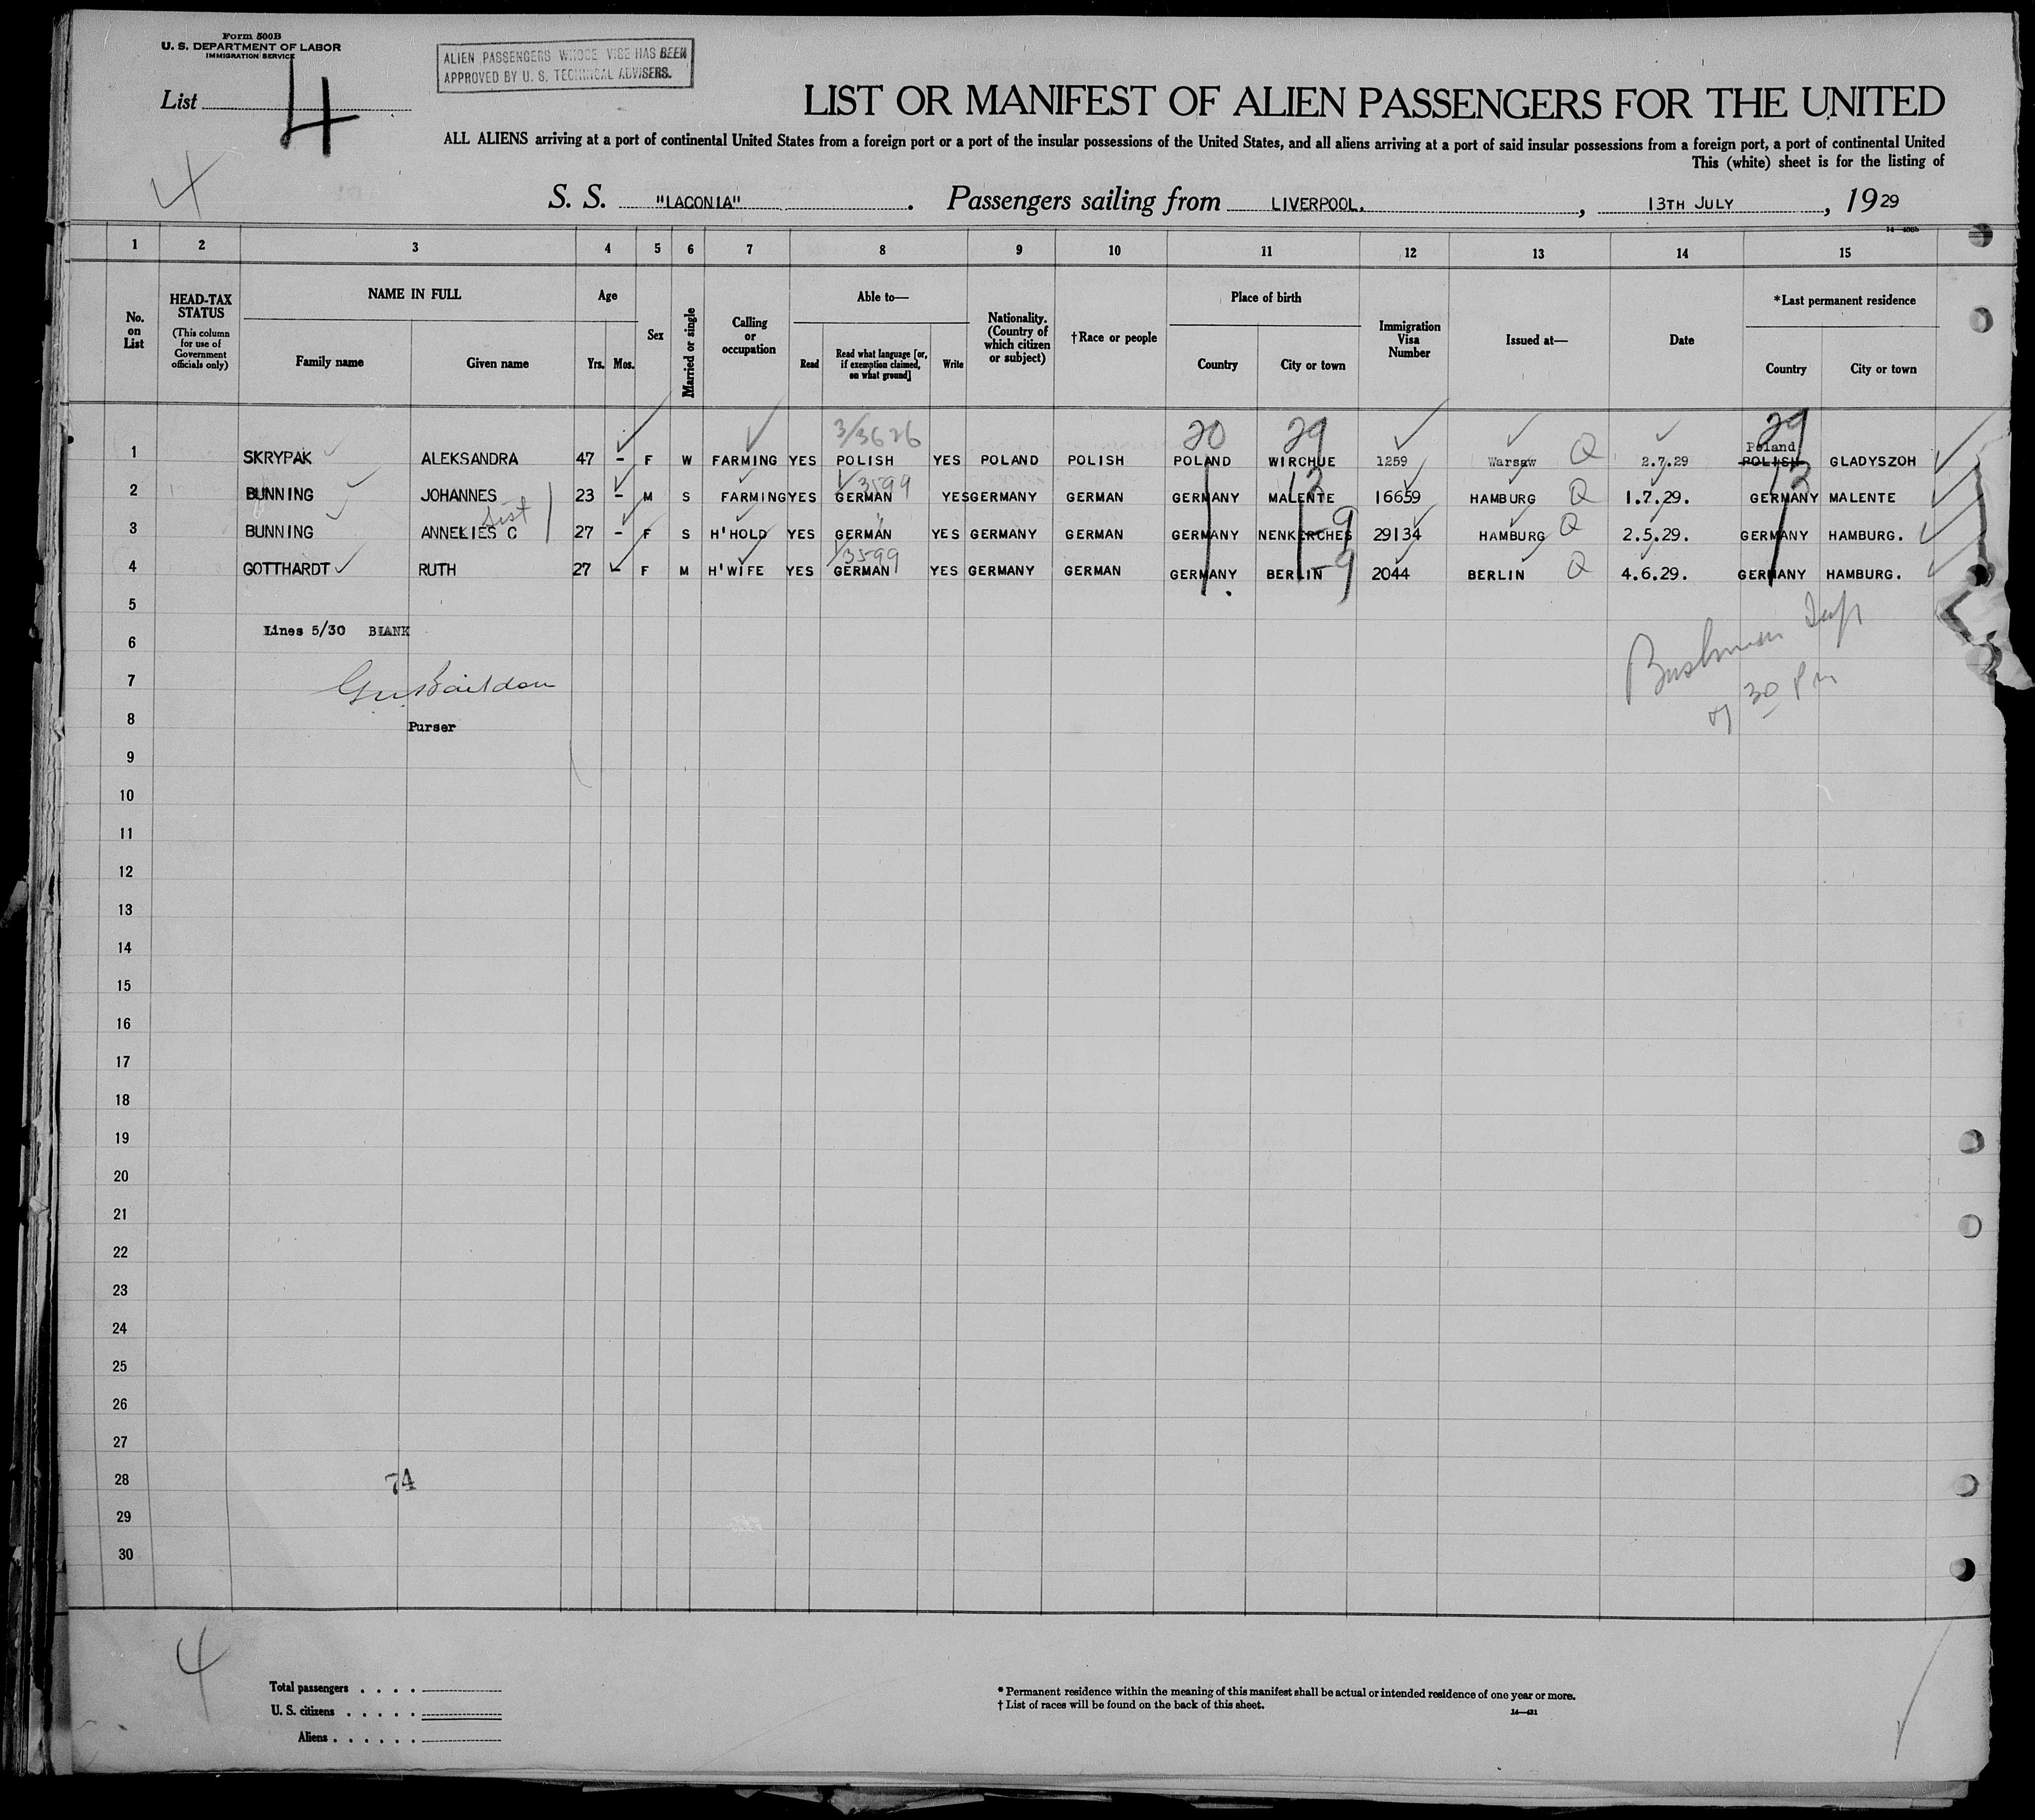 Form 500B
U. S. DEPARTMENT OF LABOR
IMMIGRATION SERVICE
ALIEN PASSENGERS WHOSE VISE HAS BEEN
APPROVED BY U. S. TECHNICAL ADVISERS.
List 4
4
LIST OR MANIFEST OF ALIEN PASSENGERS FOR THE UNITED
ALL ALIENS arriving at a port of continental United States from a foreign port or a port of the insular possessions of the United States, and all aliens arriving at a port of said insular possessions from a foreign port, a port of continental United
This (white) sheet is for the listing of
S. S. "LACONIA". Passengers sailing from LIVERPOOL., 13TH JULY, 1929
1 2 3 4 5 6 7 8 9 10 11 12 13 14 15
No. on List
HEAD-TAX STATUS
(This column for use of Government officials only)
NAME IN FULL
Family name Given name
Age
Yrs. Mos.
Sex
Married or single
Calling or occupation
Able to—
Read Read what language [or, if exemption claimed, on what ground] Write
Nationality. (Country of which citizen or subject)
†Race or people
Place of birth
Country City or town
Immigration Visa Number
Issued at—
Date
*Last permanent residence
Country City or town
3/3626 20 29 29
Poland
1 SKRYPAK ALEKSANDRA 47 - F W FARMING YES POLISH YES POLAND POLISH POLAND WIRCHUE 1259 Warsaw Q 2.7.29 POLISH GLADYSZOH
1/3599 12 12
2 BUNNING JOHANNES 23 - M S FARMING YES GERMAN YES GERMANY GERMAN GERMANY MALENTE 16659 HAMBURG Q 1.7.29. GERMANY MALENTE
sist
3 BUNNING ANNELIES C 27 - F S H'HOLD YES GERMAN YES GERMANY GERMAN GERMANY NENKERCHES 29134 HAMBURG Q 2.5.29. GERMANY HAMBURG.
1/3599
4 GOTTHARDT RUTH 27 - F M H'WIFE YES GERMAN YES GERMANY GERMAN GERMANY BERLIN 2044 BERLIN Q 4.6.29. GERMANY HAMBURG.
5
Lines 5/30 BLANK
6
7
8 Purser
9
10
11
12
13
14
15
16
17
18
19
20
21
22
23
24
25
26
27
28 74
29
30
4
Total passengers . . . .
U. S. citizens . . . . .
Aliens . . . . . .
* Permanent residence within the meaning of this manifest shall be actual or intended residence of one year or more.
† List of races will be found on the back of this sheet.
14—431